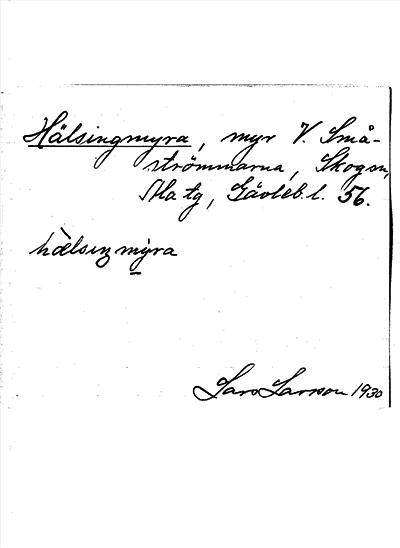 Hälsingmyra, myr V. Små-
strömmarna, Skogsn,
Ala tg, Gävleb. l. 56.
hælsiŋmyra
Lars Larsson 1930